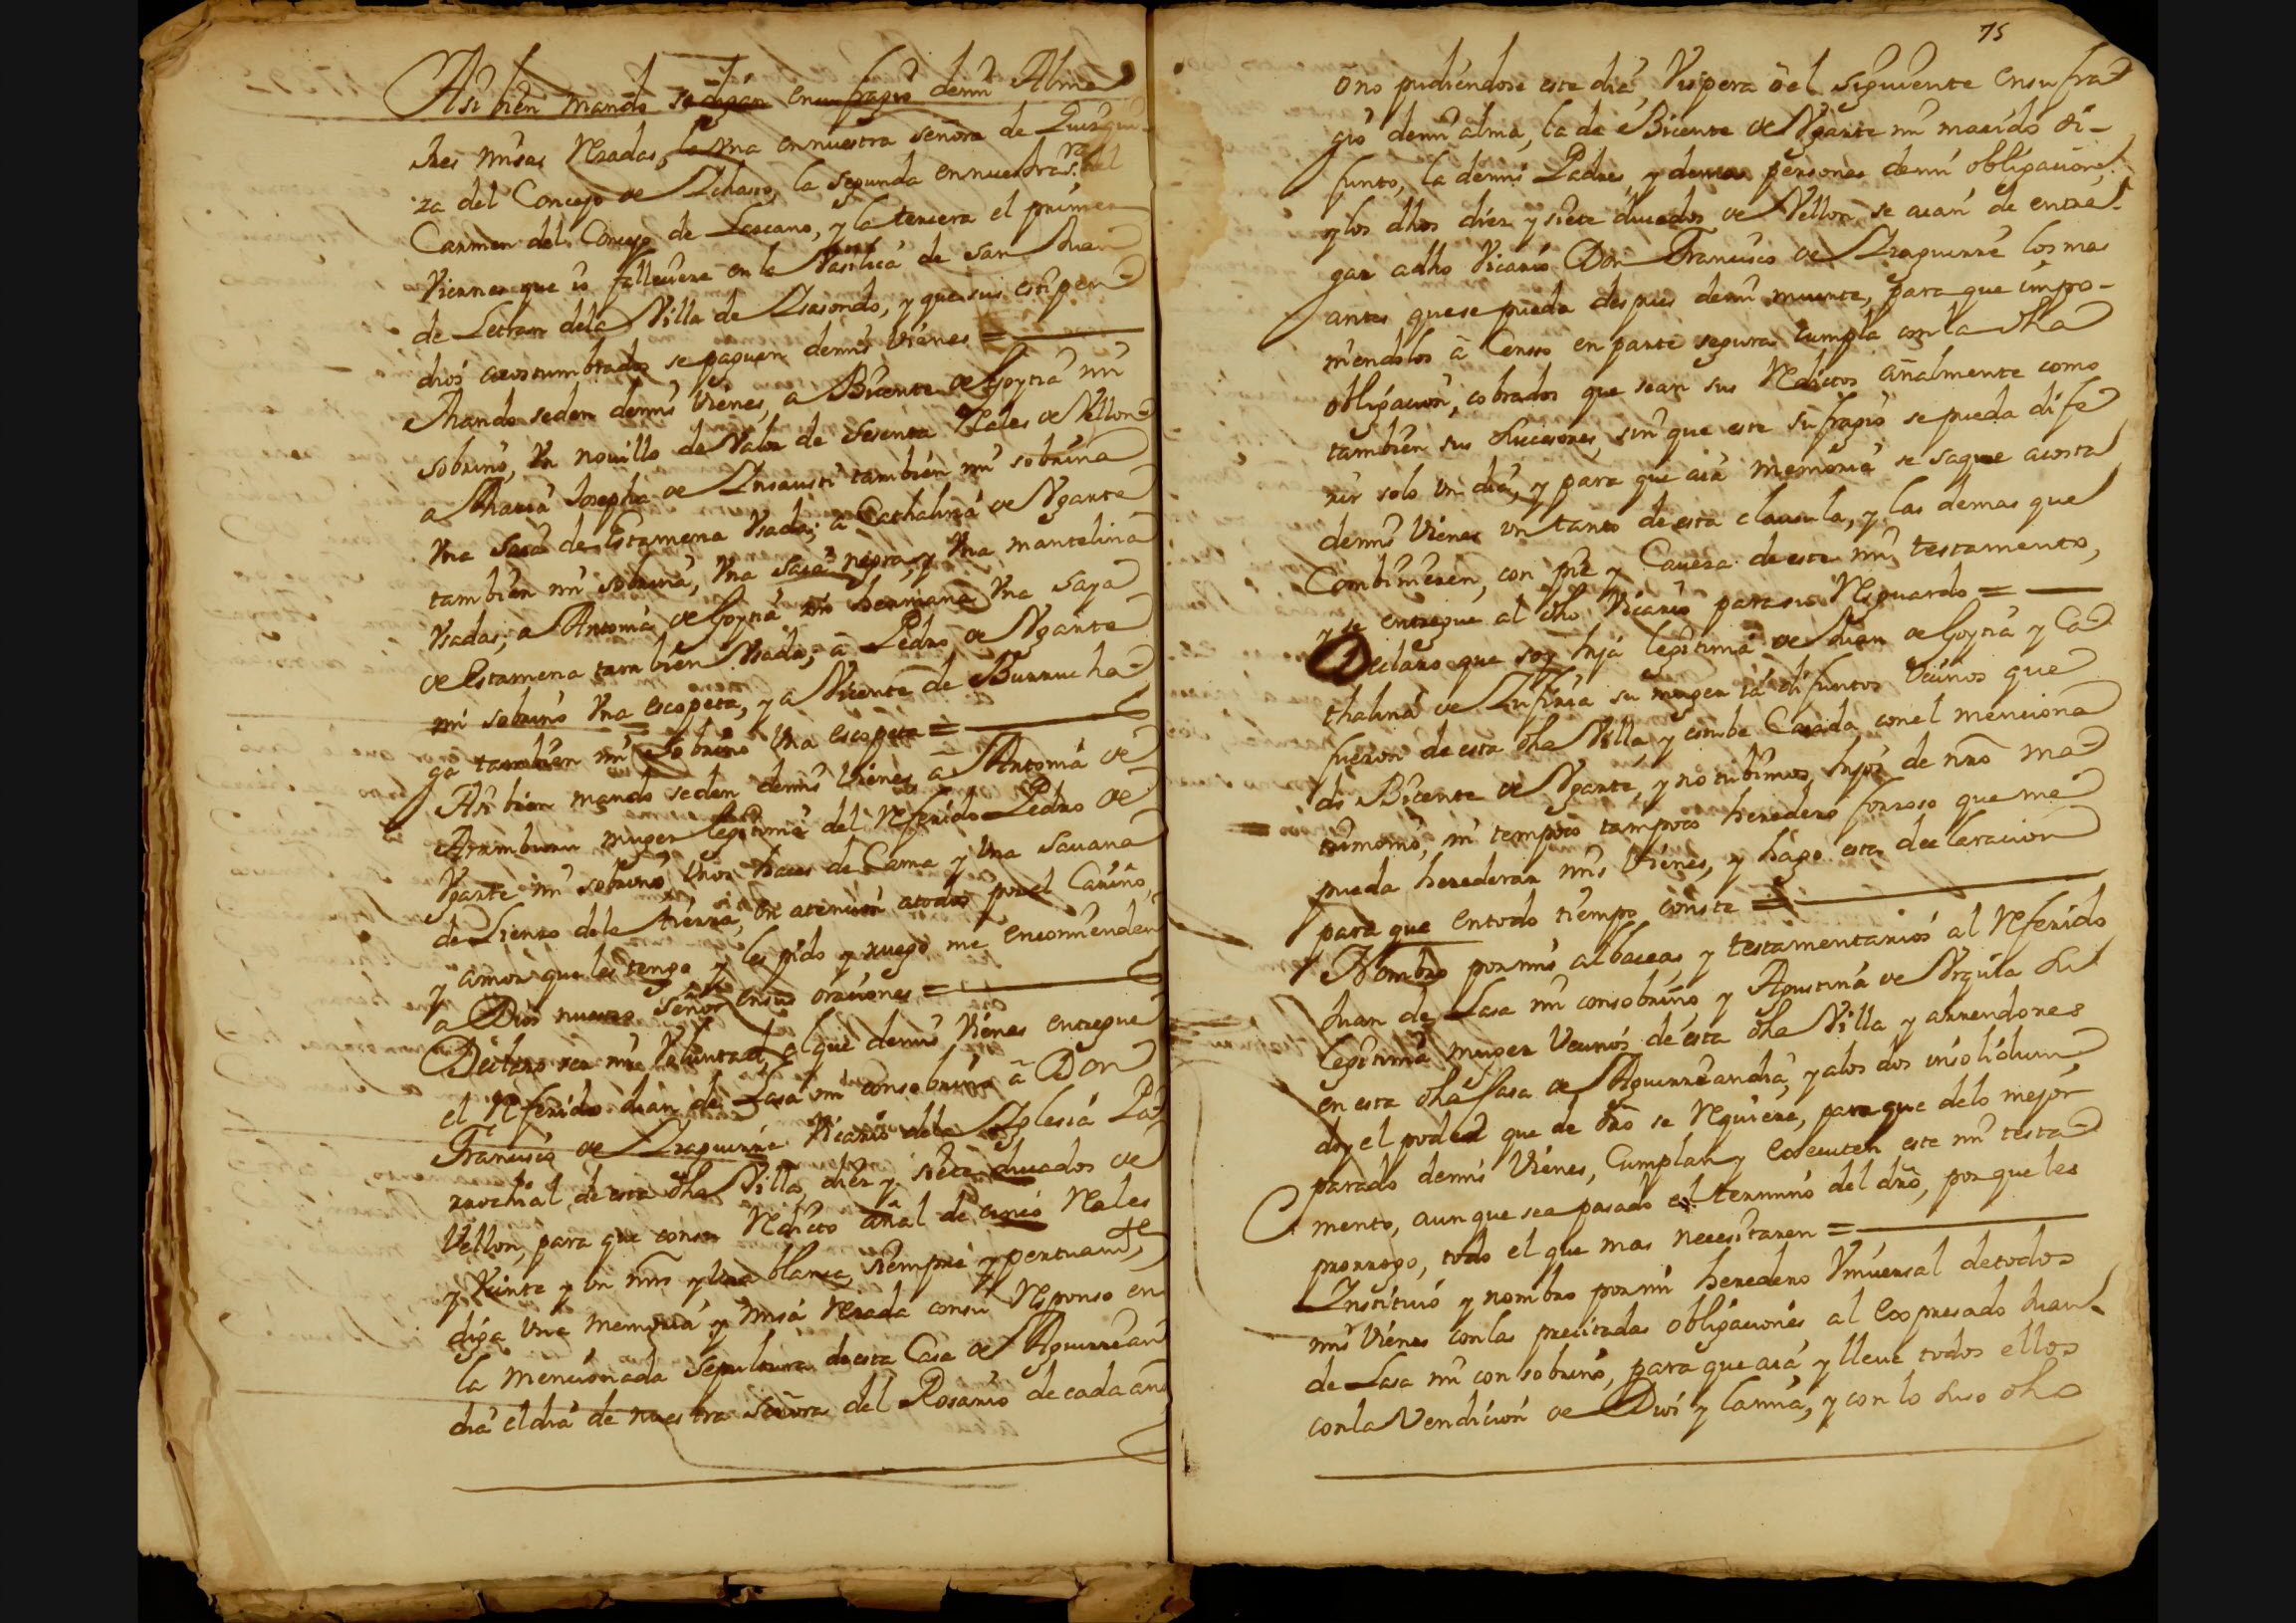 Asi bien mando se digan en sufragio demi Alma
tres misas Rezadas, la Vna en nuestra señora de
za del Concejo de la segunda en nuestra s.ra del
Carmen del Concejo de Lascano, y la tercera el primer
Viernes que io falleciere en la Vasilica de san Juan
de Letran dela Villa de Isasondo, y que sus estipen
dios acostumbrados se paguen demis vienes =
Mando seden demis vienes, a Bicente de Goytia mi
sobrino, Vn nouillo de Valor de sesenta Reales de Vellon
a Maria Josepha de Insausti tambien mi sobrina
Vna saia de estamena Vsada; a Cathalina de Vgarte
tambien mi sobrina, Vna saia negra, y Vna mantelina
Vsadas; a Antonia de Goytia mi hermana Vna saya
de estamena tambien Vsada; a Pedro de Vgarte
mi sobrino Vna escopeta, y a Vicente de Burrucha
ga tambien mi sobrino Vna escopeta =
Asi bien mando seden demis vienes a Antonia de
Aramburu muger legitima del Referido Pedro de
Vgarte mi sobrino Vnos haces de Cama y Vna sauana
de Lienzo dela tierra, en atencion atodos por el Cariño,
y amor que les tengo, y les pido y ruego me encomienden
a Dios nuestro señor ensus oraciones =
Declaro ser mi Voluntad el que demis Vienes entregue
el Referido Juan de Lasa mi consobrino a Don
Francisco de Izaguirre Vicario dela Iglesia Pa
rrochial de esta dha Villa, diez y siete ducados de
Vellon, para que consu Redicto añal de cinco Reales
y Veinte y vn mrs y Vna blanca, siempre y perpetuamte
diga Vna memoria y misa Rezada consu Responso en
la mencionada sepultura de esta Casa de Aguirrean
dia el dia de nuestra señora del Rosario de cada año
75
o no pudiendose este dia, Vispera o el siguiente en sufra
gio demi alma, la de Bicente de Vgarte mi marido di-
funto, la demis Padres, y demas personas demi obligacion,
y los dhos diez y siete ducados de Vellon se aian de entre
gar adho Vicario Don Francisco de Izaguirre los mas
antes que se pueda despues demi muerte, para que impo-
niendolos a Censo en parte segura cumpla con la dha
obligacion, cobrados que sean sus Redictos añalmente como
tambien sus sucesores, sin que este sufragio se pueda dife
rir solo vn dia, y para que aia memoria se saque acosta
demis Vienes vn tanto de esta clausula, y las demas que
Combinieren, con pie y Caueza de este mi testamento,
y se entregue al dho Vicario para su Resguardo =
Declaro que soy hija legitima de Juan de Goytia y Ca
thalina de su muger ia difuntos Vecinos que
fueron de esta dha Villa, y estube Casada con el menciona
do Bicente de Vgarte, y no tubimos hijos de nro ma
trimonio, ni tampoco heredero forzoso que me
pueda heredar mis Vienes, y hago esta declaracion
para que entodo tiempo conste =
Nombro por mis albaceas y testamentarios al Referido
Juan de Lasa mi consobrino, y Agustina de su
legitima muger Vecinos de esta dha Villa y arrendores
en esta dha Casa de Aguirreandia, y alos dos insolidum
doy el poder que de dro se Requiere, para que delo mejor
parado demis Vienes, Cumplan y executen este mi testa
mento, aun que sea pasado el termino del dro, por que les
prorrogo, todo el que mas necesitaren =
Instituio y nombro por mi heredero Vniuersal de todos
mis Vienes con las precitadas obligaciones al expresado Juan
de Lasa mi consobrino, para que aia y lleue todos ellos
con la Vendicion de Dios y la mia, y con lo suso dho